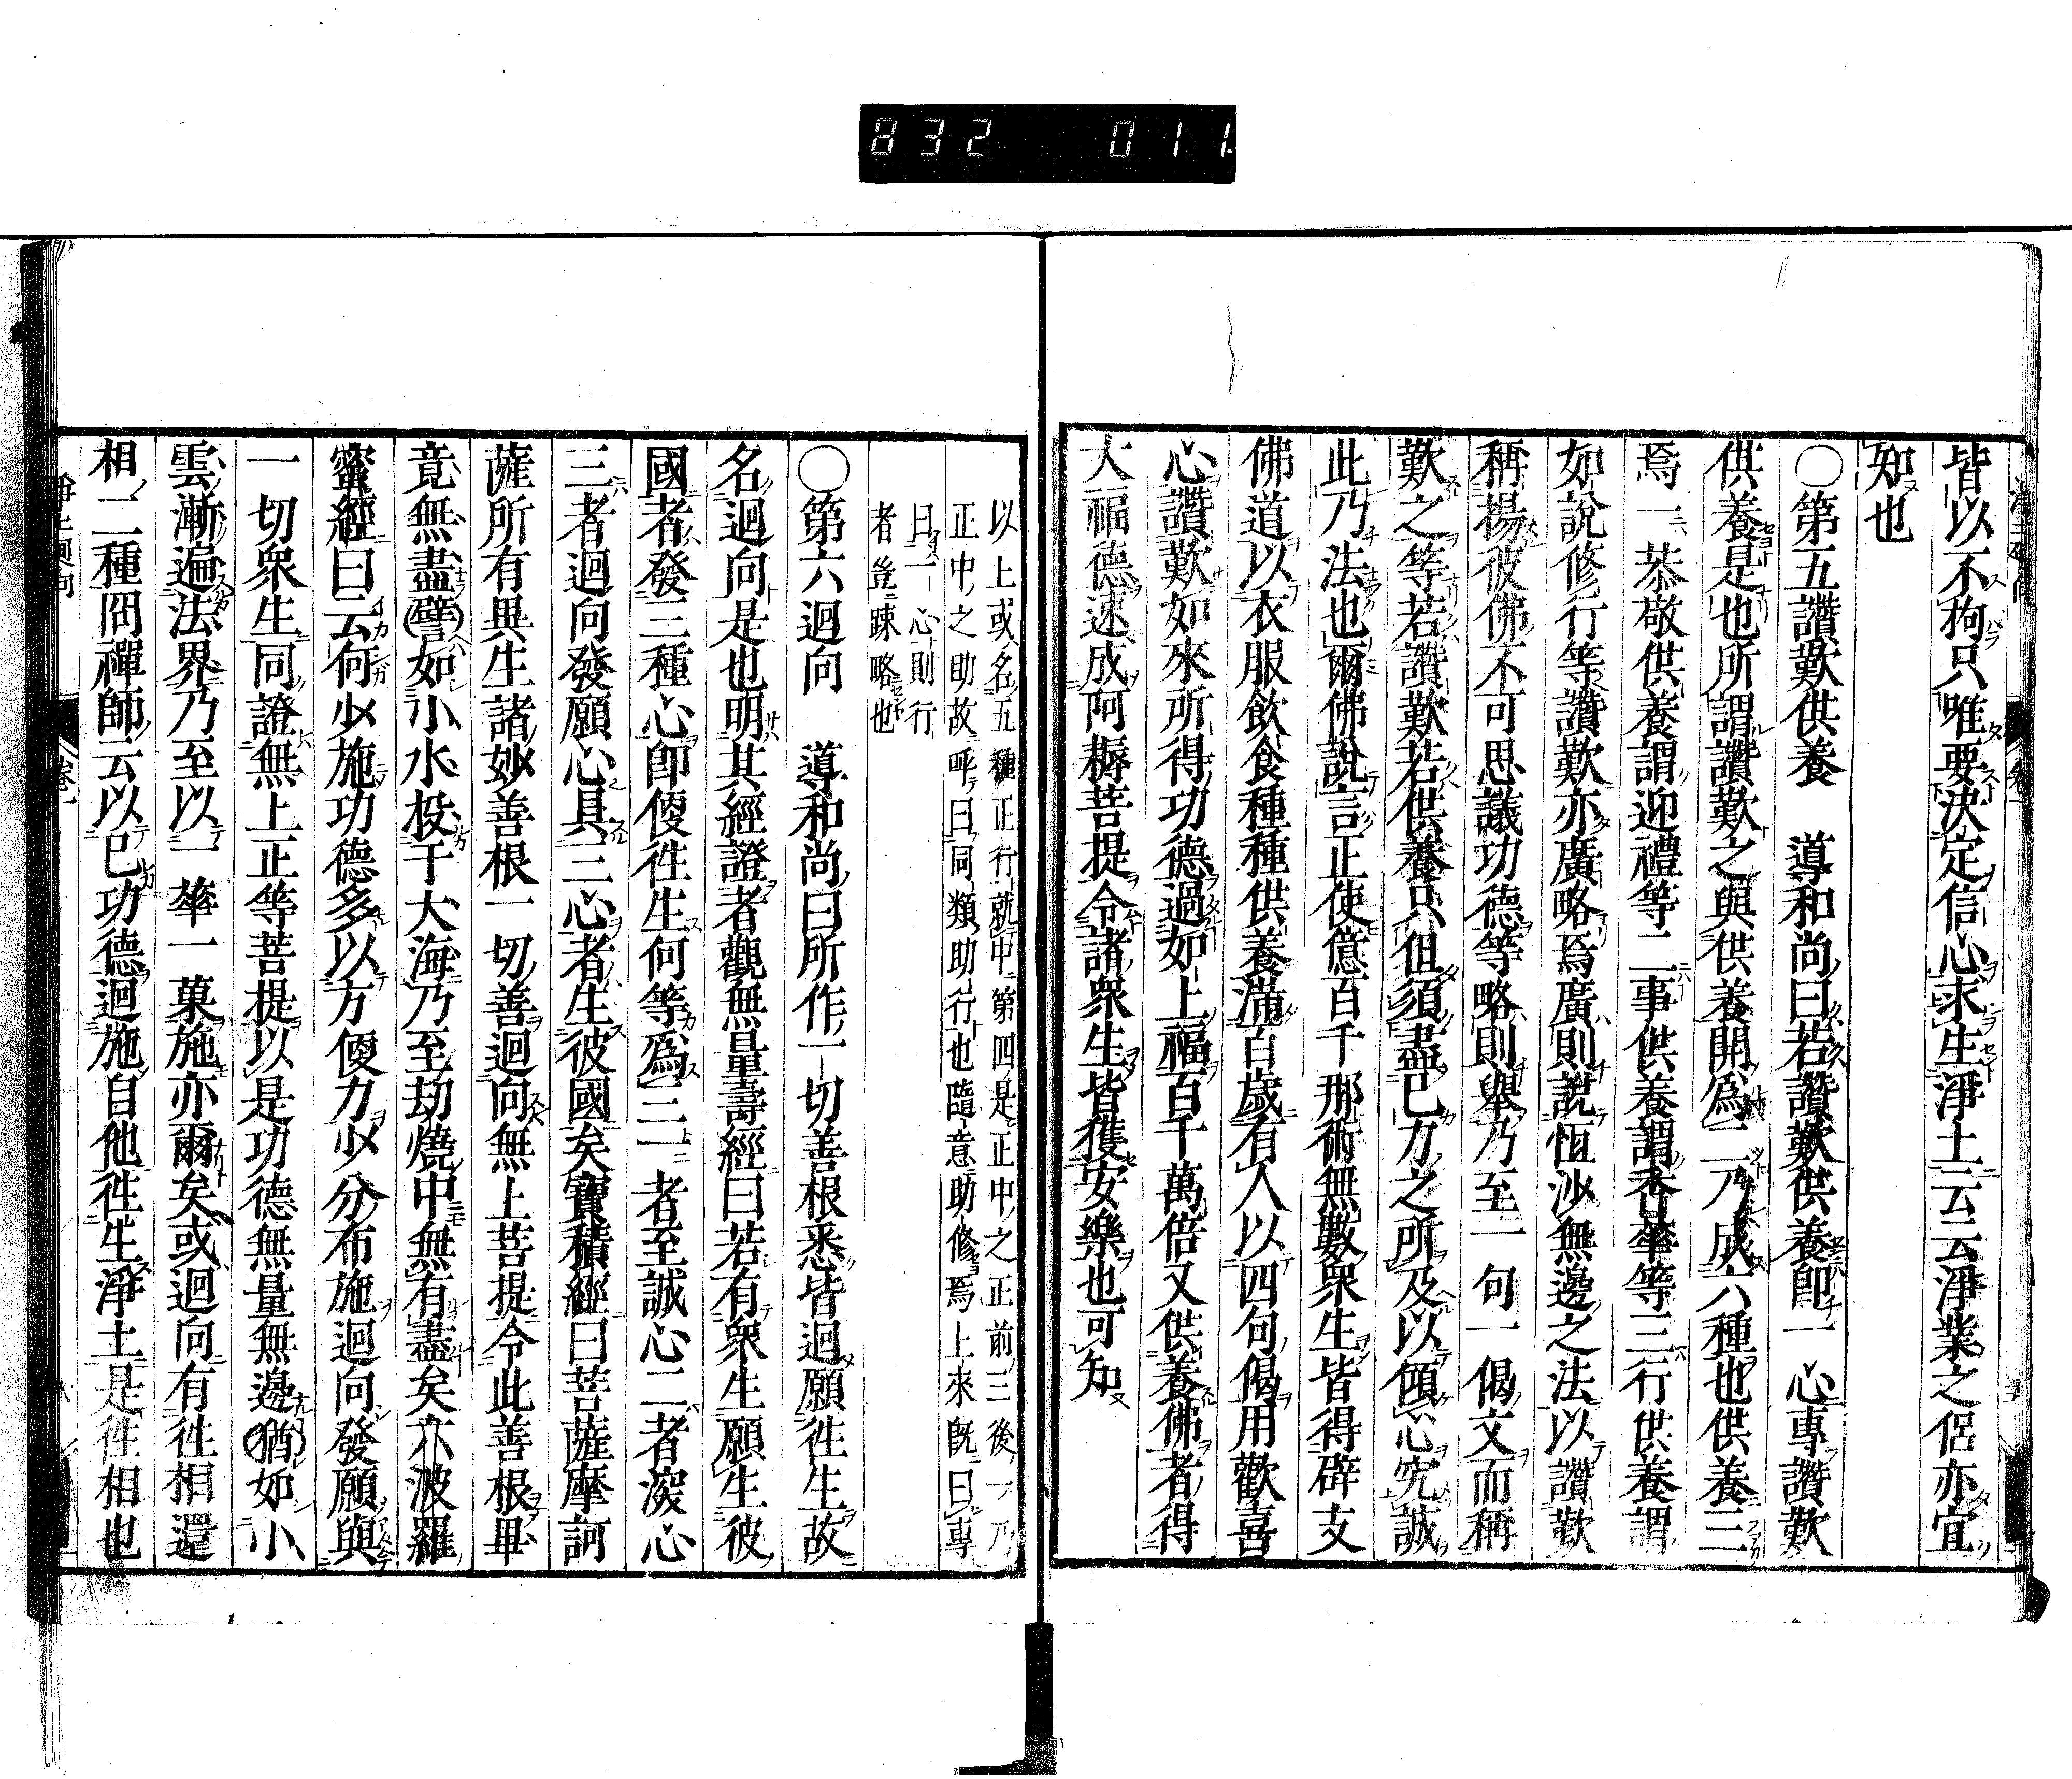 832 011
皆以不拘只唯要決定信心求生淨土云云淨業之侶亦宜
知也
○第五讚歎供養 導和尚曰若讚歎供養卽一心專讚歎
供養是也所謂讚歎之與供養開爲二乃成六種也供養三
焉一恭敬供養謂迎禮等二事供養謂香華等三行供養謂
如說修行等讚歎亦廣略焉廣則說恆沙無邊之法以讚歎
稱揚彼佛不可思議功德等略則舉乃至一句一偈文而稱
歎之等若讚歎若供養只但須盡己力之所及以傾心究誠
此乃法也爾佛說言正使億百千那術無數衆生皆得辟支
佛道以衣服飲食種種供養滿百歲有人以四句偈用歡喜
心讚歎如來所得功德過如上福百千萬倍又供養佛者得
大福德速成阿耨菩提令諸衆生皆獲安樂也可知
以上或名五種正行就中第四是正中之正前三後一乃
正中之助故呼曰同類助行也隨意助修焉上來既曰專
曰一心則行
者豈踈略也
○第六迴向 導和尚曰所作一切善根悉皆迴願往生故
名迴向是也明其經證者觀無量壽經曰若有衆生願生彼
國者發三種心卽便往生何等爲三一者至誠心二者深心
三者迴向發願心具三心者生彼國矣寶積經曰菩薩摩訶
薩所有異生諸妙善根一切善迴向無上菩提令此善根畢
竟無盡譬如小水投于大海乃至劫燒中無有盡矣六波羅
蜜經曰云何少施功德多以方便力少分布施迴向發願與
一切衆生同證無上正等菩提以是功德無量無邊猶如小
雲漸遍法界乃至以一華一菓施亦爾矣或迴向有往相還
相二種同禪師云以己功德迴施自他往生淨土是往相也